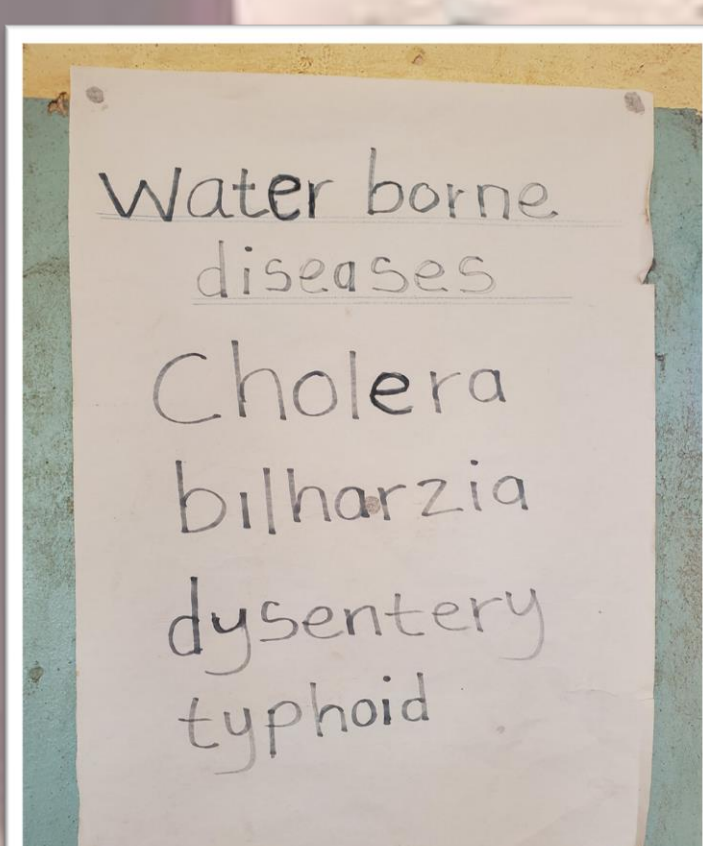 Water borne
diseases
Cholera
bilharzia
dysentery
typhoid